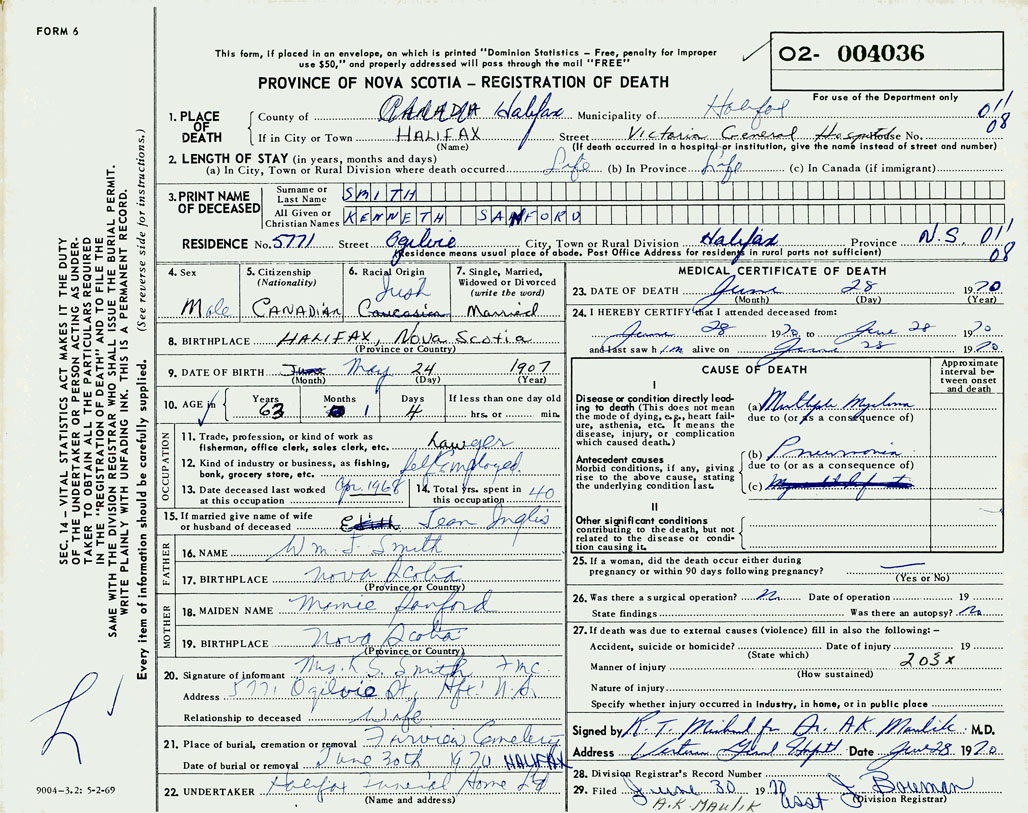 FORM 6
This form, if placed in an envelope, on which is printed "Dominion Statistics – Free, penalty for improper
use $50," and properly addressed will pass through the mail "FREE"
02- 004036
For use of the Department only
PROVINCE OF NOVA SCOTIA – REGISTRATION OF DEATH
1. PLACE OF DEATH County of CANADA Halifax Municipality of Halifax 011
If in City or Town HALIFAX Street Victoria General Hospital House No. 08
(Name) (If death occurred in a hospital or institution, give the name instead of street and number)
2. LENGTH OF STAY (in years, months and days)
(a) In City, Town or Rural Division where death occurred Life (b) In Province Life (c) In Canada (if immigrant)
3. PRINT NAME OF DECEASED Surname or Last Name SMITH
All Given or Christian Names KENNETH SANFORD
RESIDENCE No. 5771 Street Ogilvie City, Town or Rural Division Halifax Province N.S. 011
(Residence means usual place of abode. Post Office Address for residents in rural parts not sufficient) 08
4. Sex Male
5. Citizenship (Nationality) CANADIAN
6. Racial Origin Irish Caucasian
7. Single, Married, Widowed or Divorced (write the word) Married
8. BIRTHPLACE HALIFAX, NOVA SCOTIA
(Province or Country)
9. DATE OF BIRTH June May 24 1907
(Month) (Day) (Year)
10. AGE in Years Months Days If less than one day old
63 1 4 hrs. or min.
OCCUPATION
11. Trade, profession, or kind of work as
fisherman, office clerk, sales clerk, etc. Lawyer
12. Kind of industry or business, as fishing,
bank, grocery store, etc. Self Employed
13. Date deceased last worked at this occupation Apr. 1968
14. Total yrs. spent in this occupation 40
15. If married give name of wife
or husband of deceased Edith Jean Inglis
FATHER
16. NAME Wm. J. Smith
17. BIRTHPLACE Nova Scotia
(Province or Country)
MOTHER
18. MAIDEN NAME Mamie Sanford
19. BIRTHPLACE Nova Scotia
(Province or Country)
20. Signature of informant Mrs. K S. Smith
Address 5771 Ogilvie St, Hfx. N.S.
Relationship to deceased Wife
21. Place of burial, cremation or removal Fairview Cemetery
Date of burial or removal June 30th 1970 HALIFAX
22. UNDERTAKER Halifax Funeral Home Ltd
(Name and address)
MEDICAL CERTIFICATE OF DEATH
23. DATE OF DEATH June 28 1970
(Month) (Day) (Year)
24. I HEREBY CERTIFY that I attended deceased from:
June 28 1970 to June 28 1970
and last saw him alive on June 28 1970
CAUSE OF DEATH
Approximate interval between onset and death
I
Disease or condition directly leading to death (This does not mean the mode of dying, e.g., heart failure, asthenia, etc. It means the disease, injury, or complication which caused death.)
(a) Multiple Myeloma
due to (or as a consequence of)
Antecedent causes
Morbid conditions, if any, giving rise to the above cause, stating the underlying condition last.
(b) Pneumonia
due to (or as a consequence of)
(c)
II
Other significant conditions
contributing to the death, but not
related to the disease or condition causing it.
25. If a woman, did the death occur either during
pregnancy or within 90 days following pregnancy?
(Yes or No)
26. Was there a surgical operation? No Date of operation 19
State findings Was there an autopsy? No
27. If death was due to external causes (violence) fill in also the following: –
Accident, suicide or homicide? Date of injury 19
(State which) 203x
Manner of injury
(How sustained)
Nature of injury
Specify whether injury occurred in Industry, in home, or in public place
Signed by for Dr. A K Maulik M.D.
Address Victoria Genl Hosptl Date June 28 1970
28. Division Registrar's Record Number
29. Filed June 30 1970 Asst J Bowman
A.K MAULIK (Division Registrar)
SEC. 14 – VITAL STATISTICS ACT MAKES IT THE DUTY
OF THE UNDERTAKER OR PERSON ACTING AS UNDER-
TAKER TO OBTAIN ALL THE PARTICULARS REQUIRED
IN THE "REGISTRATION OF DEATH" AND TO FILE THE
SAME WITH THE DIVISION REGISTRAR WHO SHALL ISSUE THE BURIAL PERMIT.
WRITE PLAINLY WITH UNFADING INK. THIS IS A PERMANENT RECORD.
Every item of information should be carefully supplied. (See reverse side for instructions.)
9004-3.2: 5-2-69